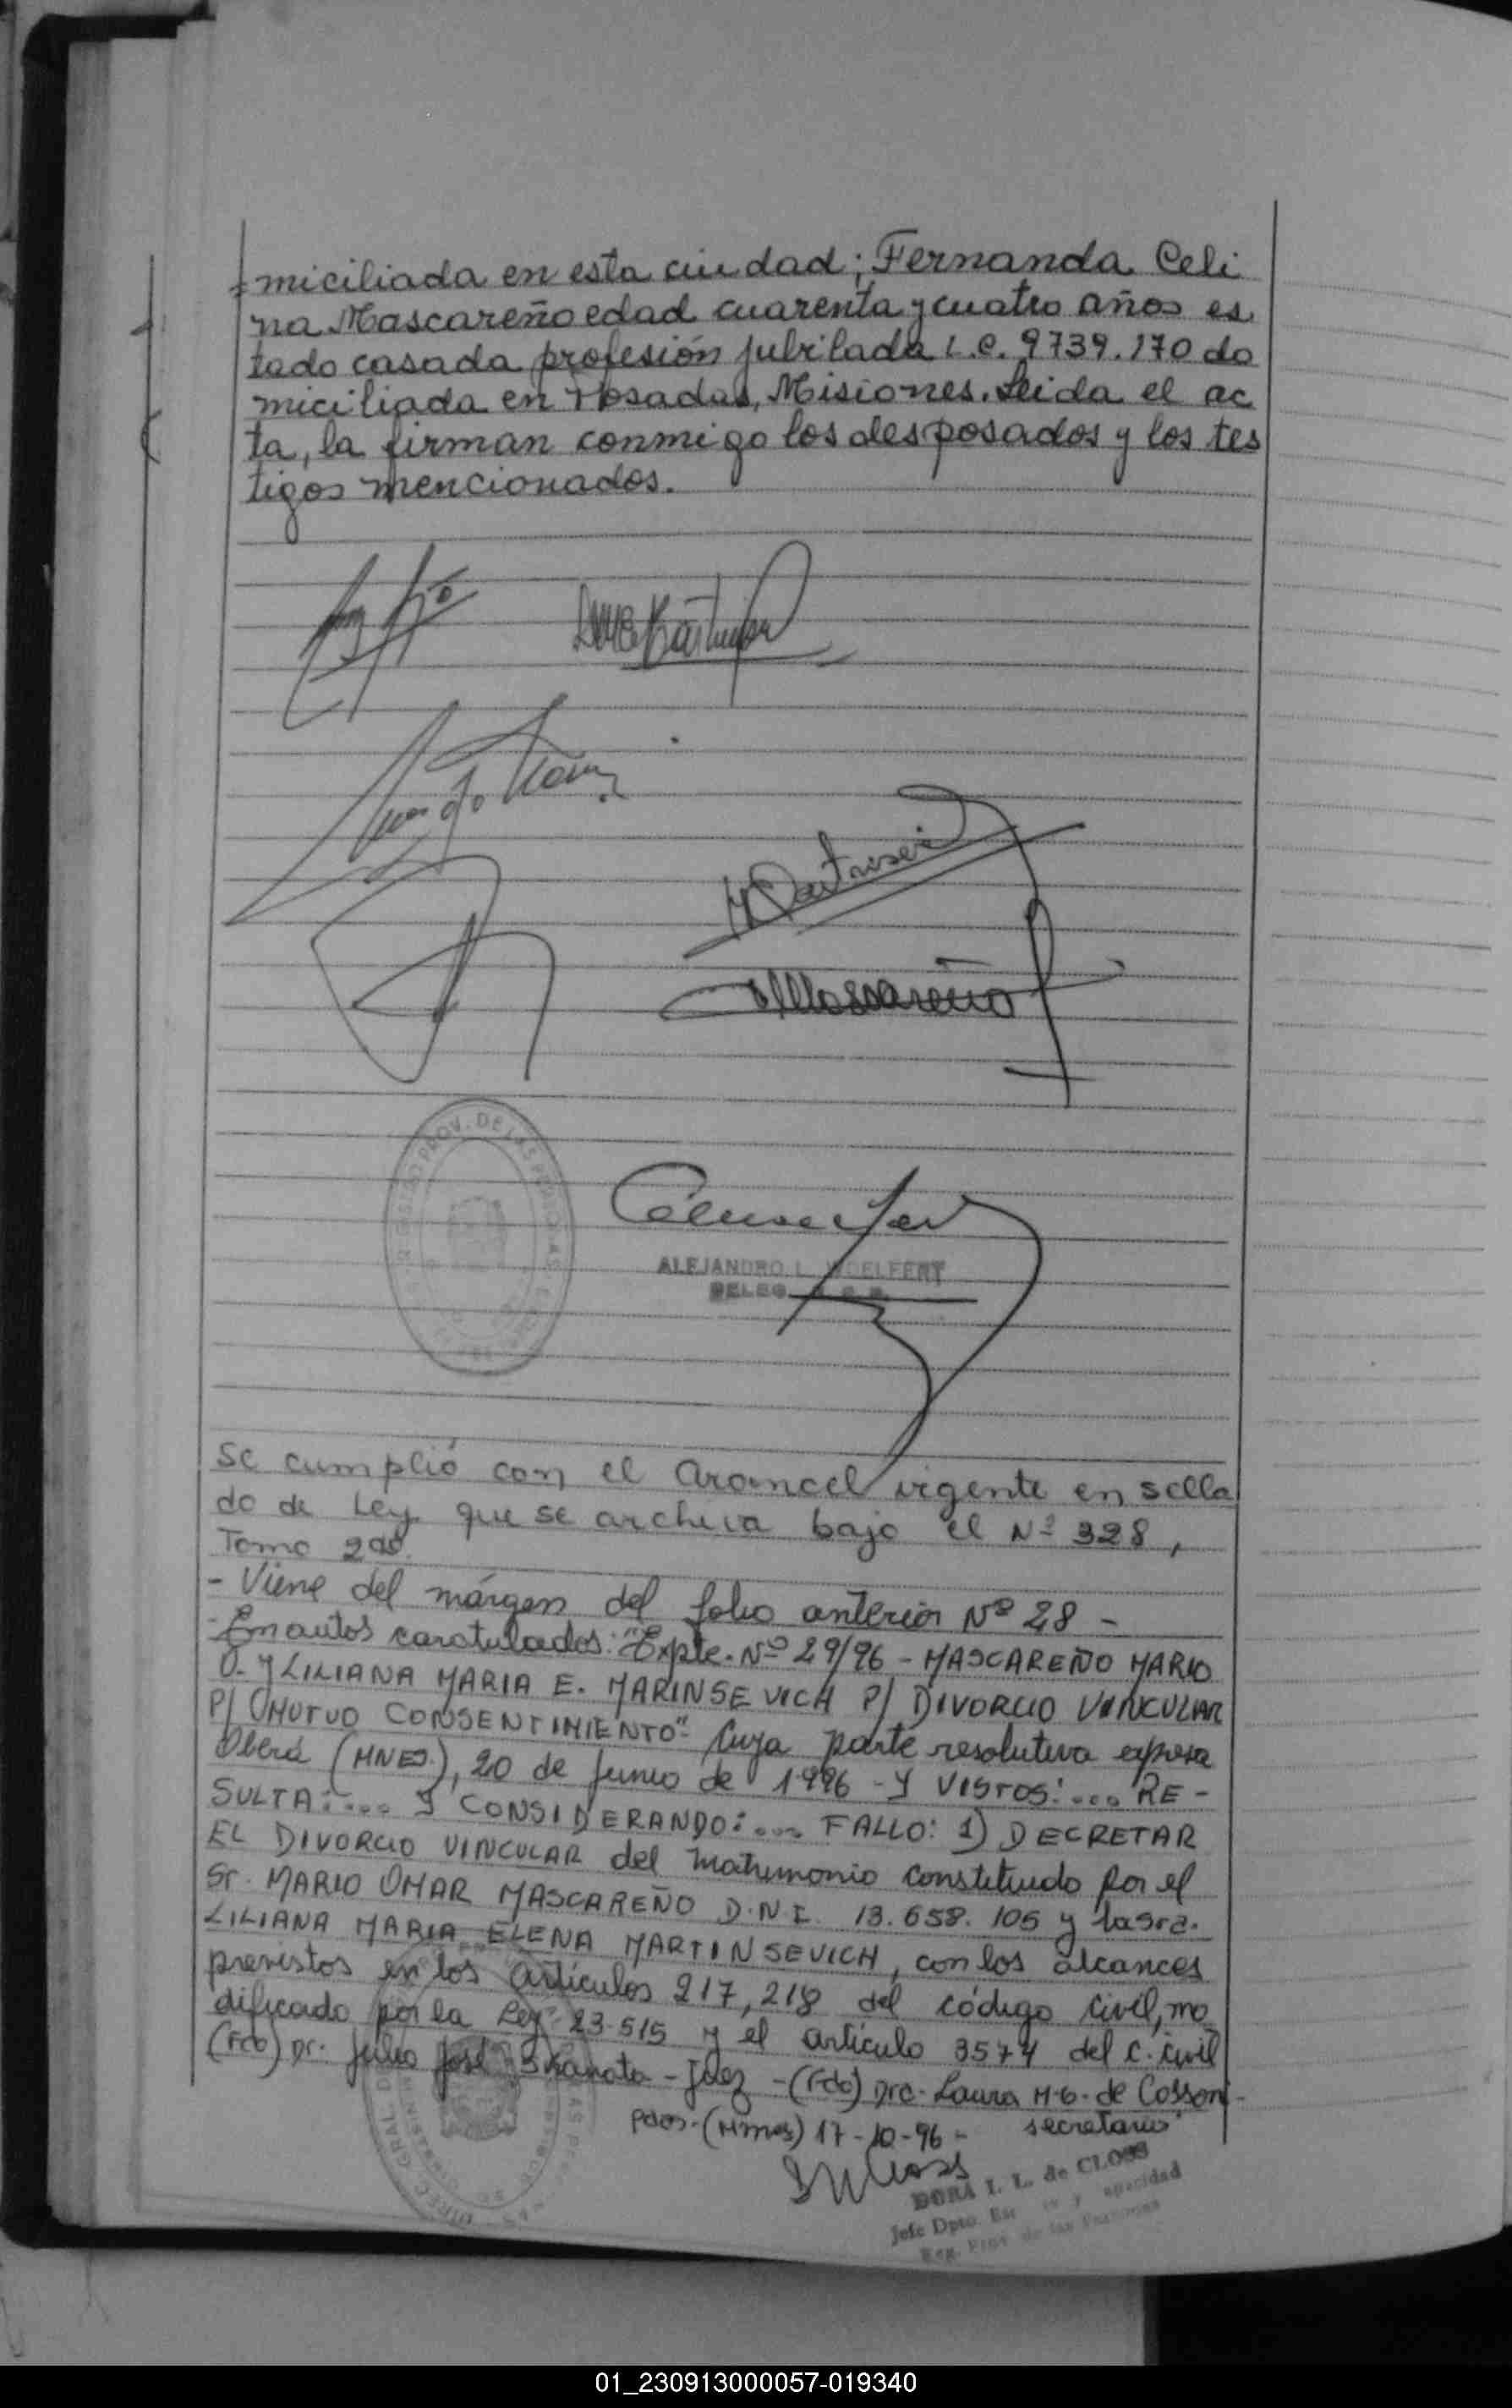 miciliada en esta ciudad; Fernanda Celi
na Mascareño edad cuarenta y cuatro años es
tado casada profesión jubilada L.C. 9739.170 do
miciliada en Posadas, Misiones. Leida el ac
ta, la firman conmigo los desposados y los tes
tigos mencionados.
Mascareño
ALEJANDRO L.
DELEG.
Se cumplió con el arancel vigente en sella
do de Ley que se archiva bajo el Nº 328,
Tomo 2do.
- Viene del márgen del folio anterior Nº 28 -
- En autos caratulados: "Expte. Nº 29/96 - MASCAREÑO MARIO
O. Y LILIANA MARIA E. MARINSEVICH P/ DIVORCIO VINCULAR
P/ MUTUO CONSENTIMIENTO" Cuya parte resolutiva expresa
Oberá (MNES.), 20 de Junio de 1996 - Y VISTOS: .... RE -
SULTA: .... Y CONSIDERANDO: .... FALLO: 1) DECRETAR
EL DIVORCIO VINCULAR del matrimonio constituido por el
Sr. MARIO OMAR MASCAREÑO D.N.I. 13.658.105 y la Sra.
LILIANA MARIA ELENA MARTINSEVICH, con los alcances
previstos en los artículos 217, 218 del código civil, mo
dificado por la Ley 23.515 y el artículo 3574 del C. Civil
(Fdo) Dr. Julio José - Juez - (Fdo) Dra. Laura M. G. de Cossoni -
Pdas. (Mnes) 17-10-96 - secretario
DORA I. L. de CLOSS
Jefe Dpto.
Reg. Prov. de las Personas